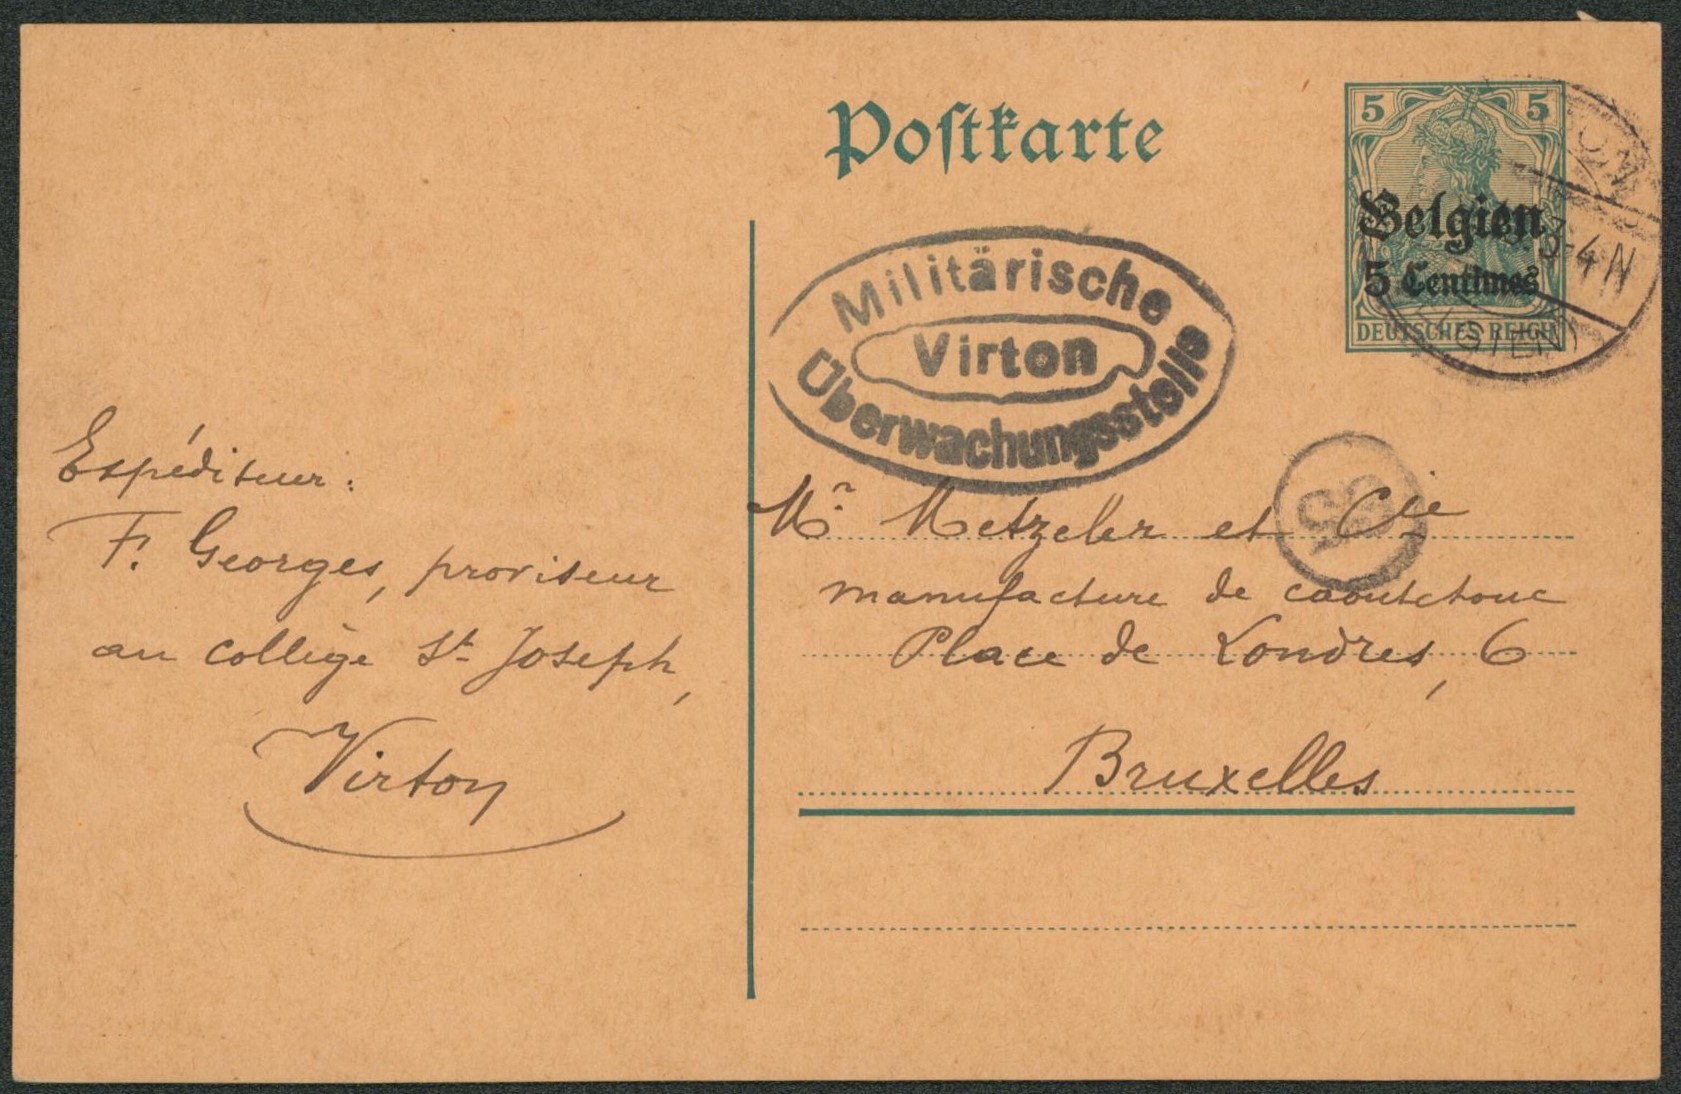 Postkarte
5 5
Belgien
5 Centimes
DEUTSCHES REICH
3-4 N
Militärische
Virton
Überwachungsstelle
Expéditeur:
F. Georges, proviseur
au collège St Joseph,
Virton
Mr. Metzeler et Cie
manufacture de caoutchouc
Place de Londres, 6
Bruxelles